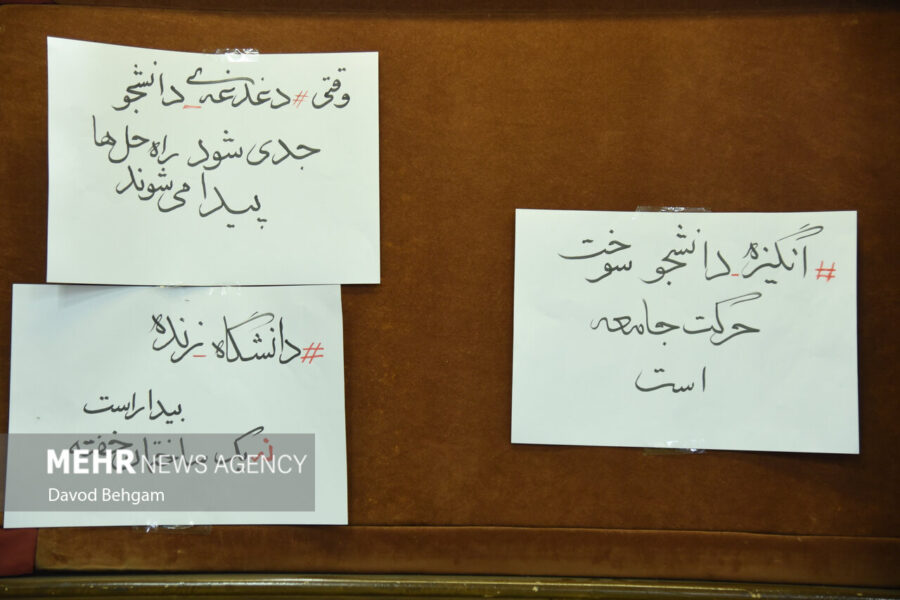 وقتی #دغدغه‌ی_دانشجو
جدی شود راه حل‌ها
پیدا می‌شوند
#انگیزه_دانشجو سوخت
حرکت جامعه
است
#دانشگاه_زنده
بیدار است
نه یک ساختار خفته
MEHR NEWS AGENCY
Davod Behgam